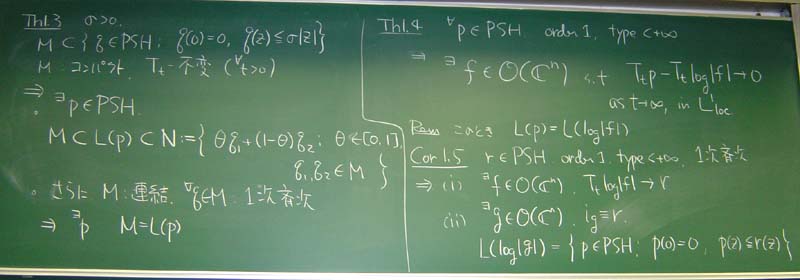 Th1.3 σ>0.
M ⊂ { q∈PSH; q(0)=0, q(z)≦σ|z| }
M:コンパクト, T_t-不変 (∀t>0)
⇒ ∃p∈PSH.
M⊂L(p)⊂N:={ θq₁+(1-θ)q₂; θ∈[0,1],
q₁,q₂∈M }
。さらに M:連結, ∀q∈M:1次斉次
⇒ ∃p M=L(p)
Th1.4 ∀p∈PSH. order 1, type<+∞
⇒ ∃f∈O(ℂⁿ) s.t T_t p - T_t log|f| → 0
as t→∞, in L¹loc
Rem このとき L(p)=L(log|f|)
Cor1.5 r∈PSH. order 1, type<+∞, 1次斉次
⇒ (i) ∃f∈O(ℂⁿ). T_t log|f| → r
(ii) ∃g∈O(ℂⁿ). i_g≡r.
L(log|g|)={ p∈PSH; p(0)=0, p(z)≦r(z) }